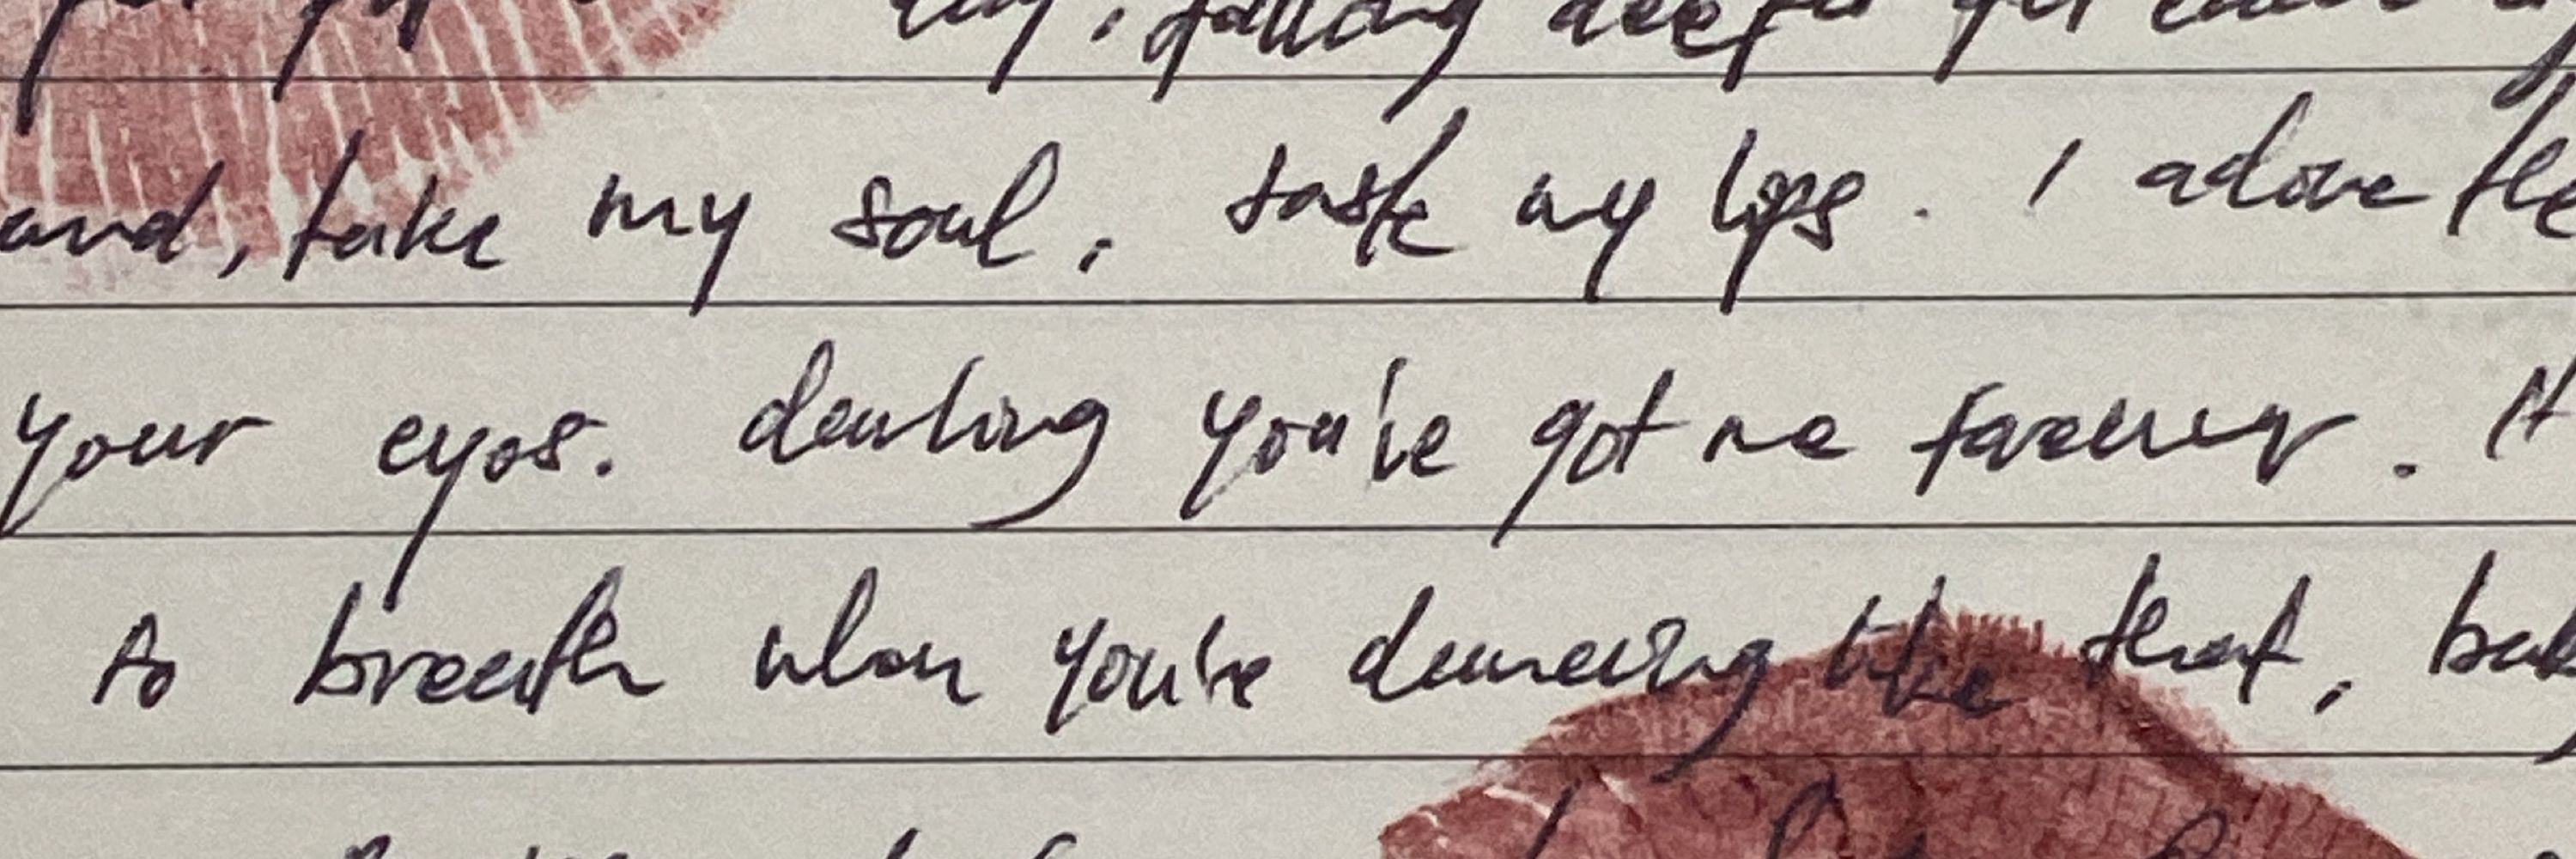 falling deeper
and, take my soul, taste my lips. I adore the
your eyes. darling you've got me forever. It
to breath when you're dancing like that,